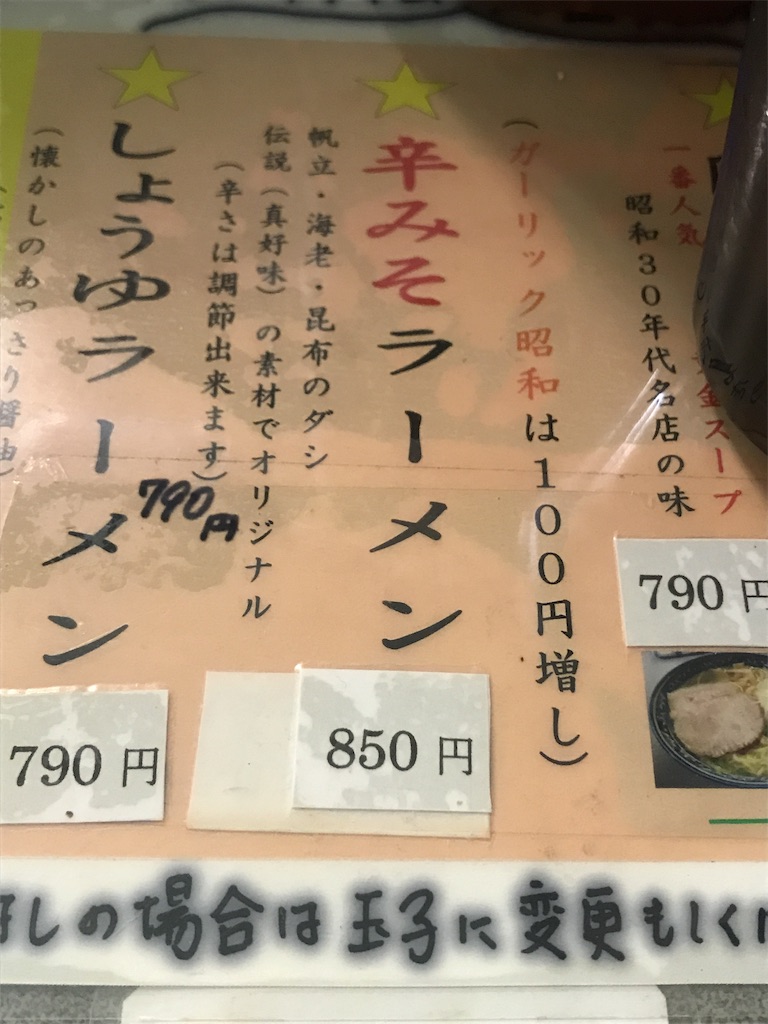 一番人気
金スープ
昭和30年代名店の味
790円
(ガーリック昭和は100円増し)
辛みそラーメン
帆立・海老・昆布のダシ
伝説(真好味)の素材でオリジナル
(辛さは調節出来ます)
850円
しょうゆラーメン
790円
790円
(懐かしのあっさり醤油)
しの場合は玉子に変更もしくは